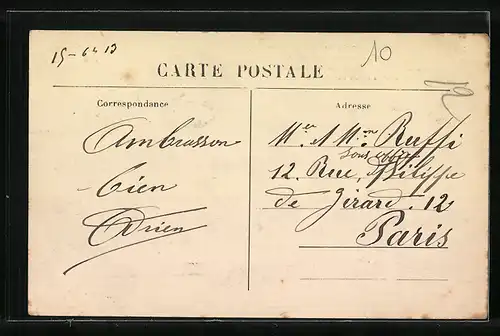 15-6-13
10
CARTE POSTALE
Correspondance
Adresse
Ambrasson
Bien
Adrien
Mr & Mme Ruffi
12. Rue, Philippe
de Girard. 12
Paris